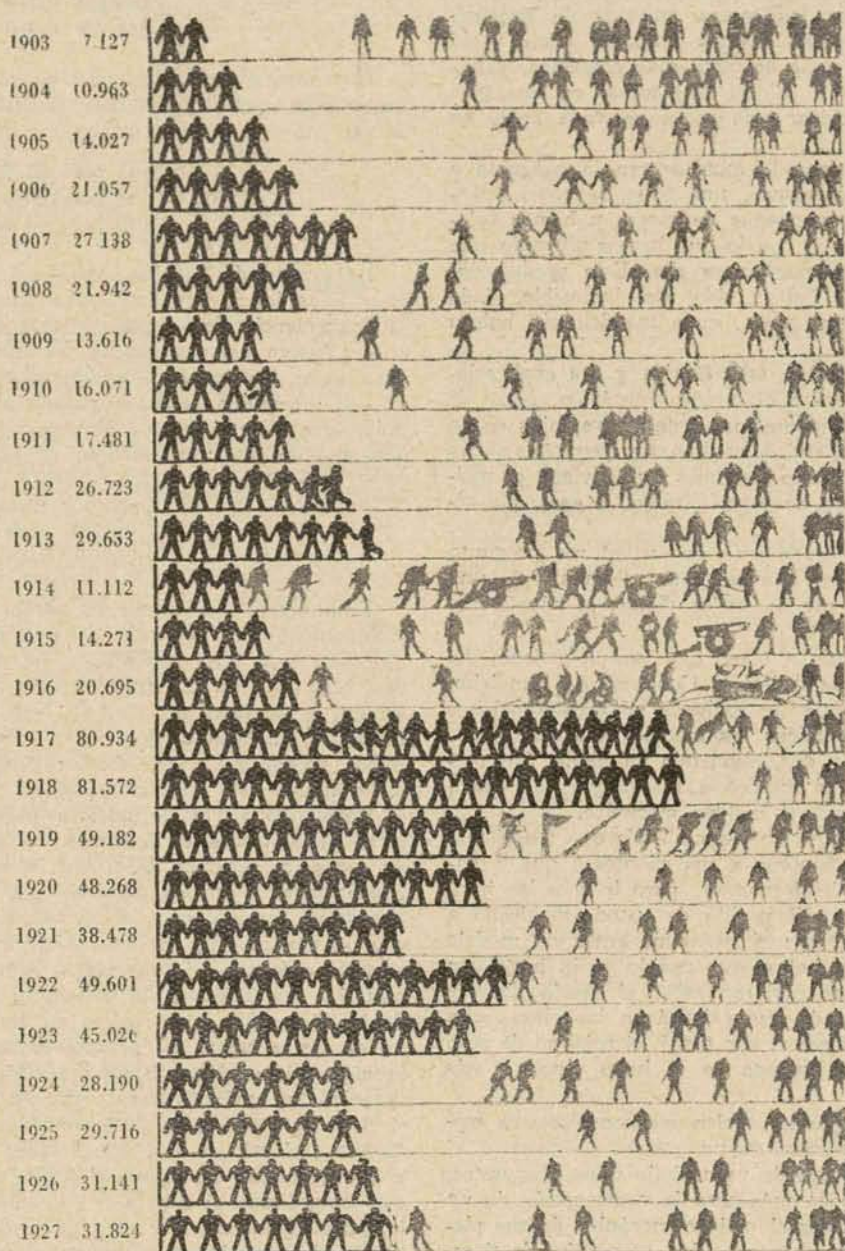 1903 7.127
1904 10.963
1905 14.027
1906 21.057
1907 27.138
1908 21.942
1909 13.616
1910 16.071
1911 17.481
1912 26.723
1913 29.653
1914 11.112
1915 14.271
1916 20.695
1917 80.934
1918 81.572
1919 49.182
1920 48.268
1921 38.478
1922 49.601
1923 45.026
1924 28.190
1925 29.716
1926 31.141
1927 31.824